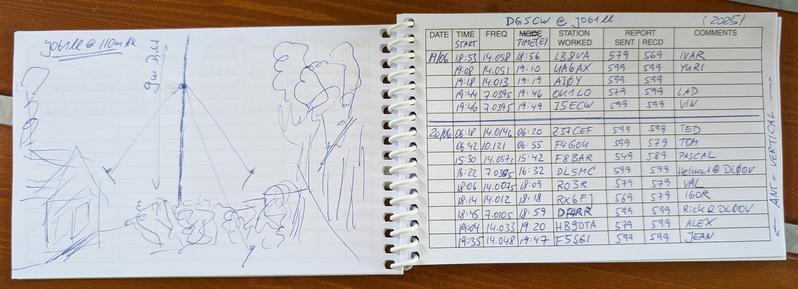 JO61ll @ 110m
DG5CW @ JO61ll (2025)
DATE TIME START FREQ MODE TIME(E) STATION WORKED REPORT SENT RECD COMMENTS
19/06 18:53 14.058 18:56 LB8VA 579 569 IVAR
19:08 14.051 19:10 UA6AX 599 599 YURI
19:18 14.013 19:19 599 599
19:44 7.0395 19:46 OK1LO 579 579 LAD
19:46 7.0395 19:49 I5ECW 599 599 VIN
20/06 06:18 14.0146 06:20 Z37CEF 599 599 TED
06:42 10.121 06:55 F4GOU 599 579 TOM
15:30 14.057 15:42 F8BAR 549 589 PASCAL
16:22 16:32 DL5MC 599 599 Helmut @ DL0OV
18:06 14.0075 18:09 RO3R 579 579 VAL
18:14 14.012 18:18 569 579 IGOR
18:45 7.0105 18:59 599 599 Rick @ DL0OV
19:04 14.033 19:20 HB9DTA 579 599 ALEX
19:35 14.048 19:47 F5SGI 599 599 JEAN
ANT = VERTICAL